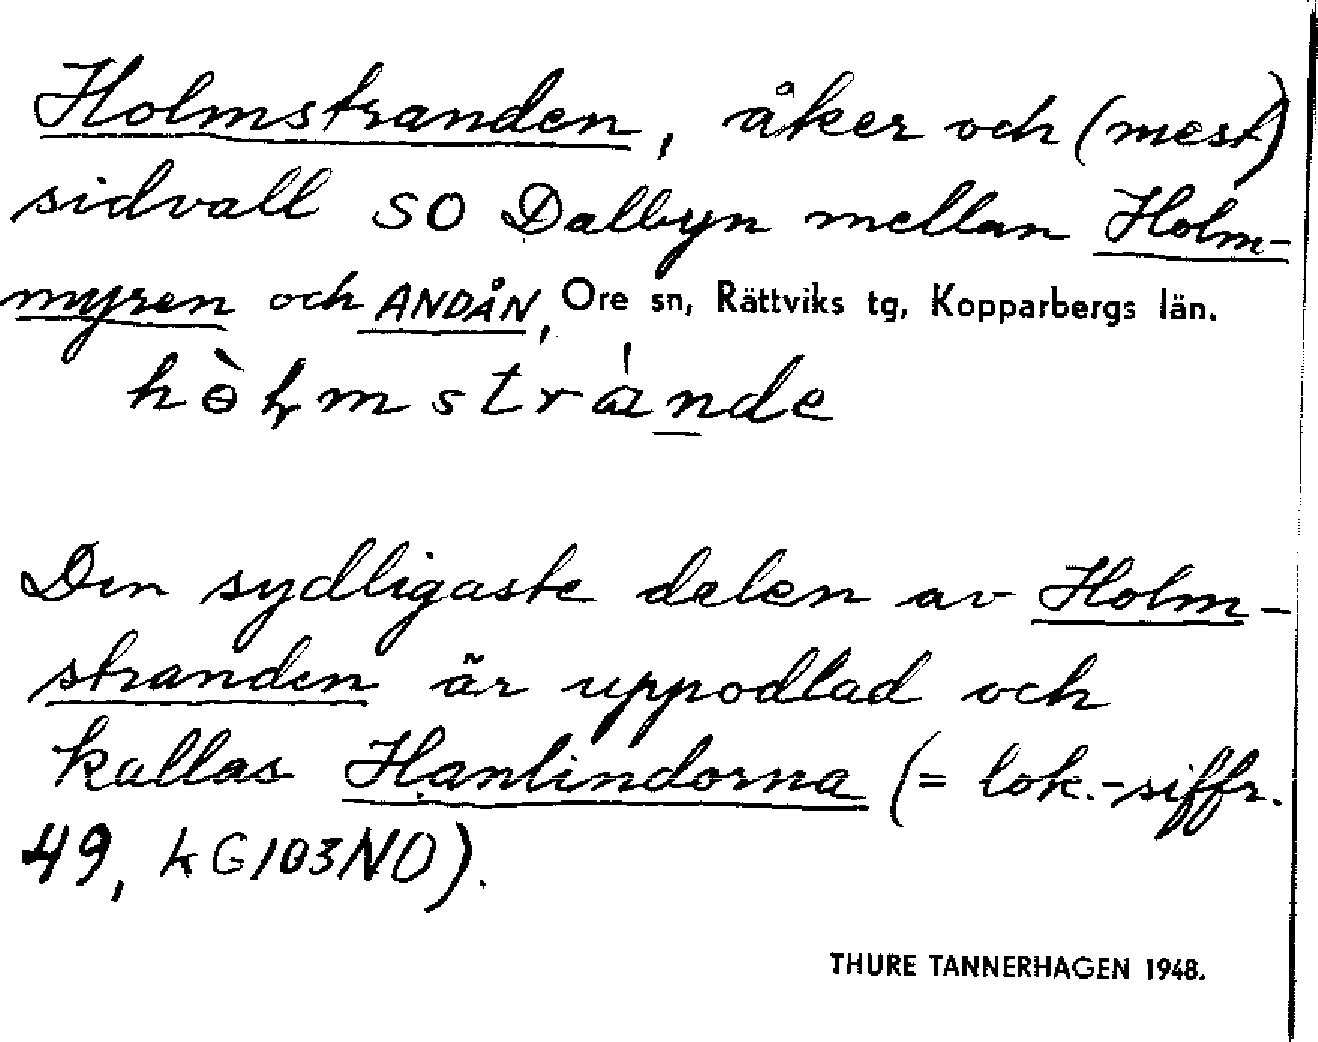 Holmstranden, åker och (mest)
sidvall SO Dalbyn mellan Holm-
myren och ANDÅN, Ore sn, Rättviks tg, Kopparbergs län.
Den sydligaste delen av Holm-
stranden är uppodlad och
kallas Hanlindorna (= lok.-siffr.
49, kG103NO).
THURE TANNERHAGEN 1948.